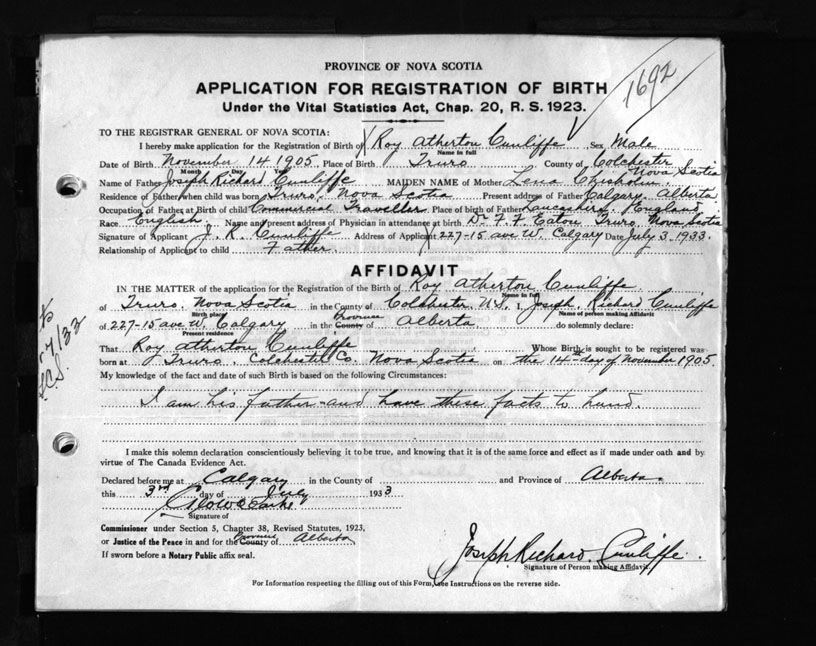 PROVINCE OF NOVA SCOTIA
1692
APPLICATION FOR REGISTRATION OF BIRTH
Under the Vital Statistics Act, Chap. 20, R. S. 1923.
TO THE REGISTRAR GENERAL OF NOVA SCOTIA:
I hereby make application for the Registration of Birth of Roy Atherton Cunliffe Sex Male
Name in full
Date of Birth November 14 1905 Place of Birth Truro County of Colchester
Month Day Year Nova Scotia
Name of Father Joseph Richard Cunliffe MAIDEN NAME of Mother Lena Chisholm
Residence of Father when child was born Truro, Nova Scotia Present address of Father Calgary, Alberta
Occupation of Father at Birth of child Commercial Traveller Place of birth of Father Lancashire, England
Race English Name and present address of Physician in attendance at birth Dr F. F. Eaton Truro Nova Scotia
Signature of Applicant J. R. Cunliffe Address of Applicant 227-15 ave W. Calgary Date July 3, 1933.
Relationship of Applicant to child Father.
AFFIDAVIT
IN THE MATTER of the application for the Registration of the Birth of Roy Atherton Cunliffe
Name in full
of Truro, Nova Scotia in the County of Colchester N.S. I, Joseph Richard Cunliffe
Birth place Name of person making Affidavit
of 227-15 ave W. Calgary in the County of Province Alberta do solemnly declare:
Present residence
That Roy Atherton Cunliffe Whose Birth is sought to be registered was
born at Truro, Colchester Co. Nova Scotia on the 14th day of November 1905.
My knowledge of the fact and date of such Birth is based on the following Circumstances:
I am his father and have these facts to hand.
I make this solemn declaration conscientiously believing it to be true, and knowing that it is of the same force and effect as if made under oath and by
virtue of The Canada Evidence Act.
Declared before me at Calgary in the County of and Province of Alberta.
this 3rd day of July 1933
Signature of
Commissioner under Section 5, Chapter 38, Revised Statutes, 1923,
or Justice of the Peace in and for the County of Province Alberta
If sworn before a Notary Public affix seal.
Joseph Richard Cunliffe.
Signature of Person making Affidavit.
For Information respecting the filling out of this Form, see Instructions on the reverse side.